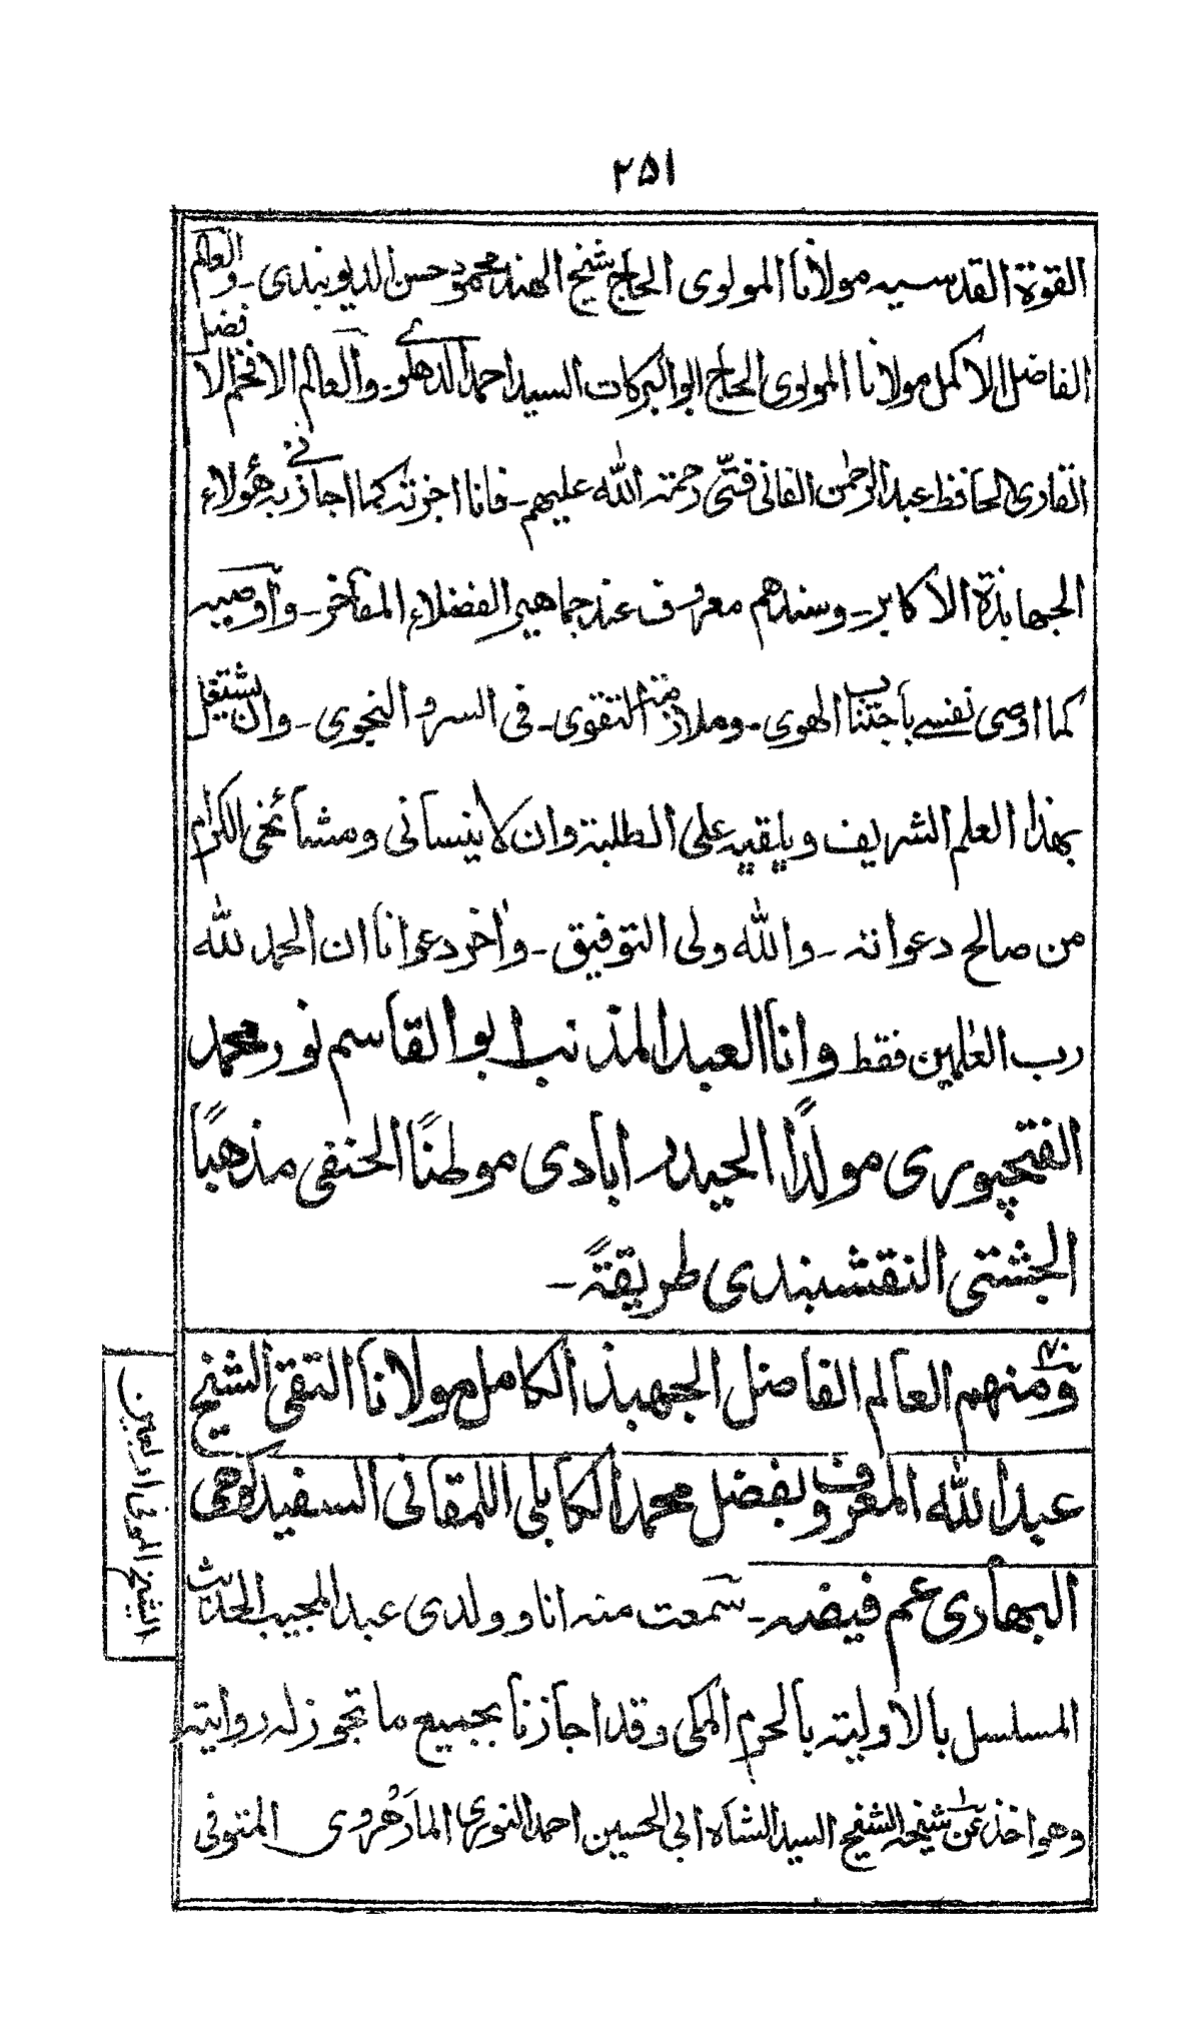 ۲۵۱
القوة القدسيه مولانا المولوى الحاج شيخ الهند محمود حسن الديوبندى ـ والعالم
الفاضل الاكمل مولانا المولوى الحاج ابو البركات السيد احمد الدهلوے ـ والعالم الافخم الافضل
القارى الحافظ عبد الرحمن الفانى فتى رحمته الله عليهم ـ فانا اجزته كما اجازنے به هؤلاء
الجهابذة الاكابر ـ وسندهم معروف عند جماهير الفضلاء المفاخر ـ واوصيه
كما اوصى نفسے باجتناب الهوى ـ وملازمته التقوى ـ فى السر و النجوى ـ وان يشتغل
بهذا العلم الشريف ويلقيه على الطلبته وان لا ينسانى ومشائخى الكرام
من صالح دعواته ـ والله ولى التوفيق ـ واٰخر دعوانا ان الحمد لله
رب العٰلمين فقط وانا العبد المذنب ابو القاسم نور محمد
الفتحپورى مولدًا الحيدر ابادى موطنًا الحنفى مذهبًا
الجشتى النقشبندى طريقةً ـ
ومنهم العالم الفاضل الجهبذ الكامل مولانا التقى الشيخ
عبد الله المعروف بفضل محمد الكابلى اللمقانى السفيد كوهى
البهارى عم فيضه ـ سمعت منه انا و ولدى عبد المجيب الحديث
المسلسل بالاوليته بالحرم المكى وقد اجازنا بجميع ما تجوز له روايته
وهو اخذ عن شيخه الشيخ السيد الشاه ابى الحسين احمد النورى المارهروى المتوفى
الشيخ الموفى اربعين